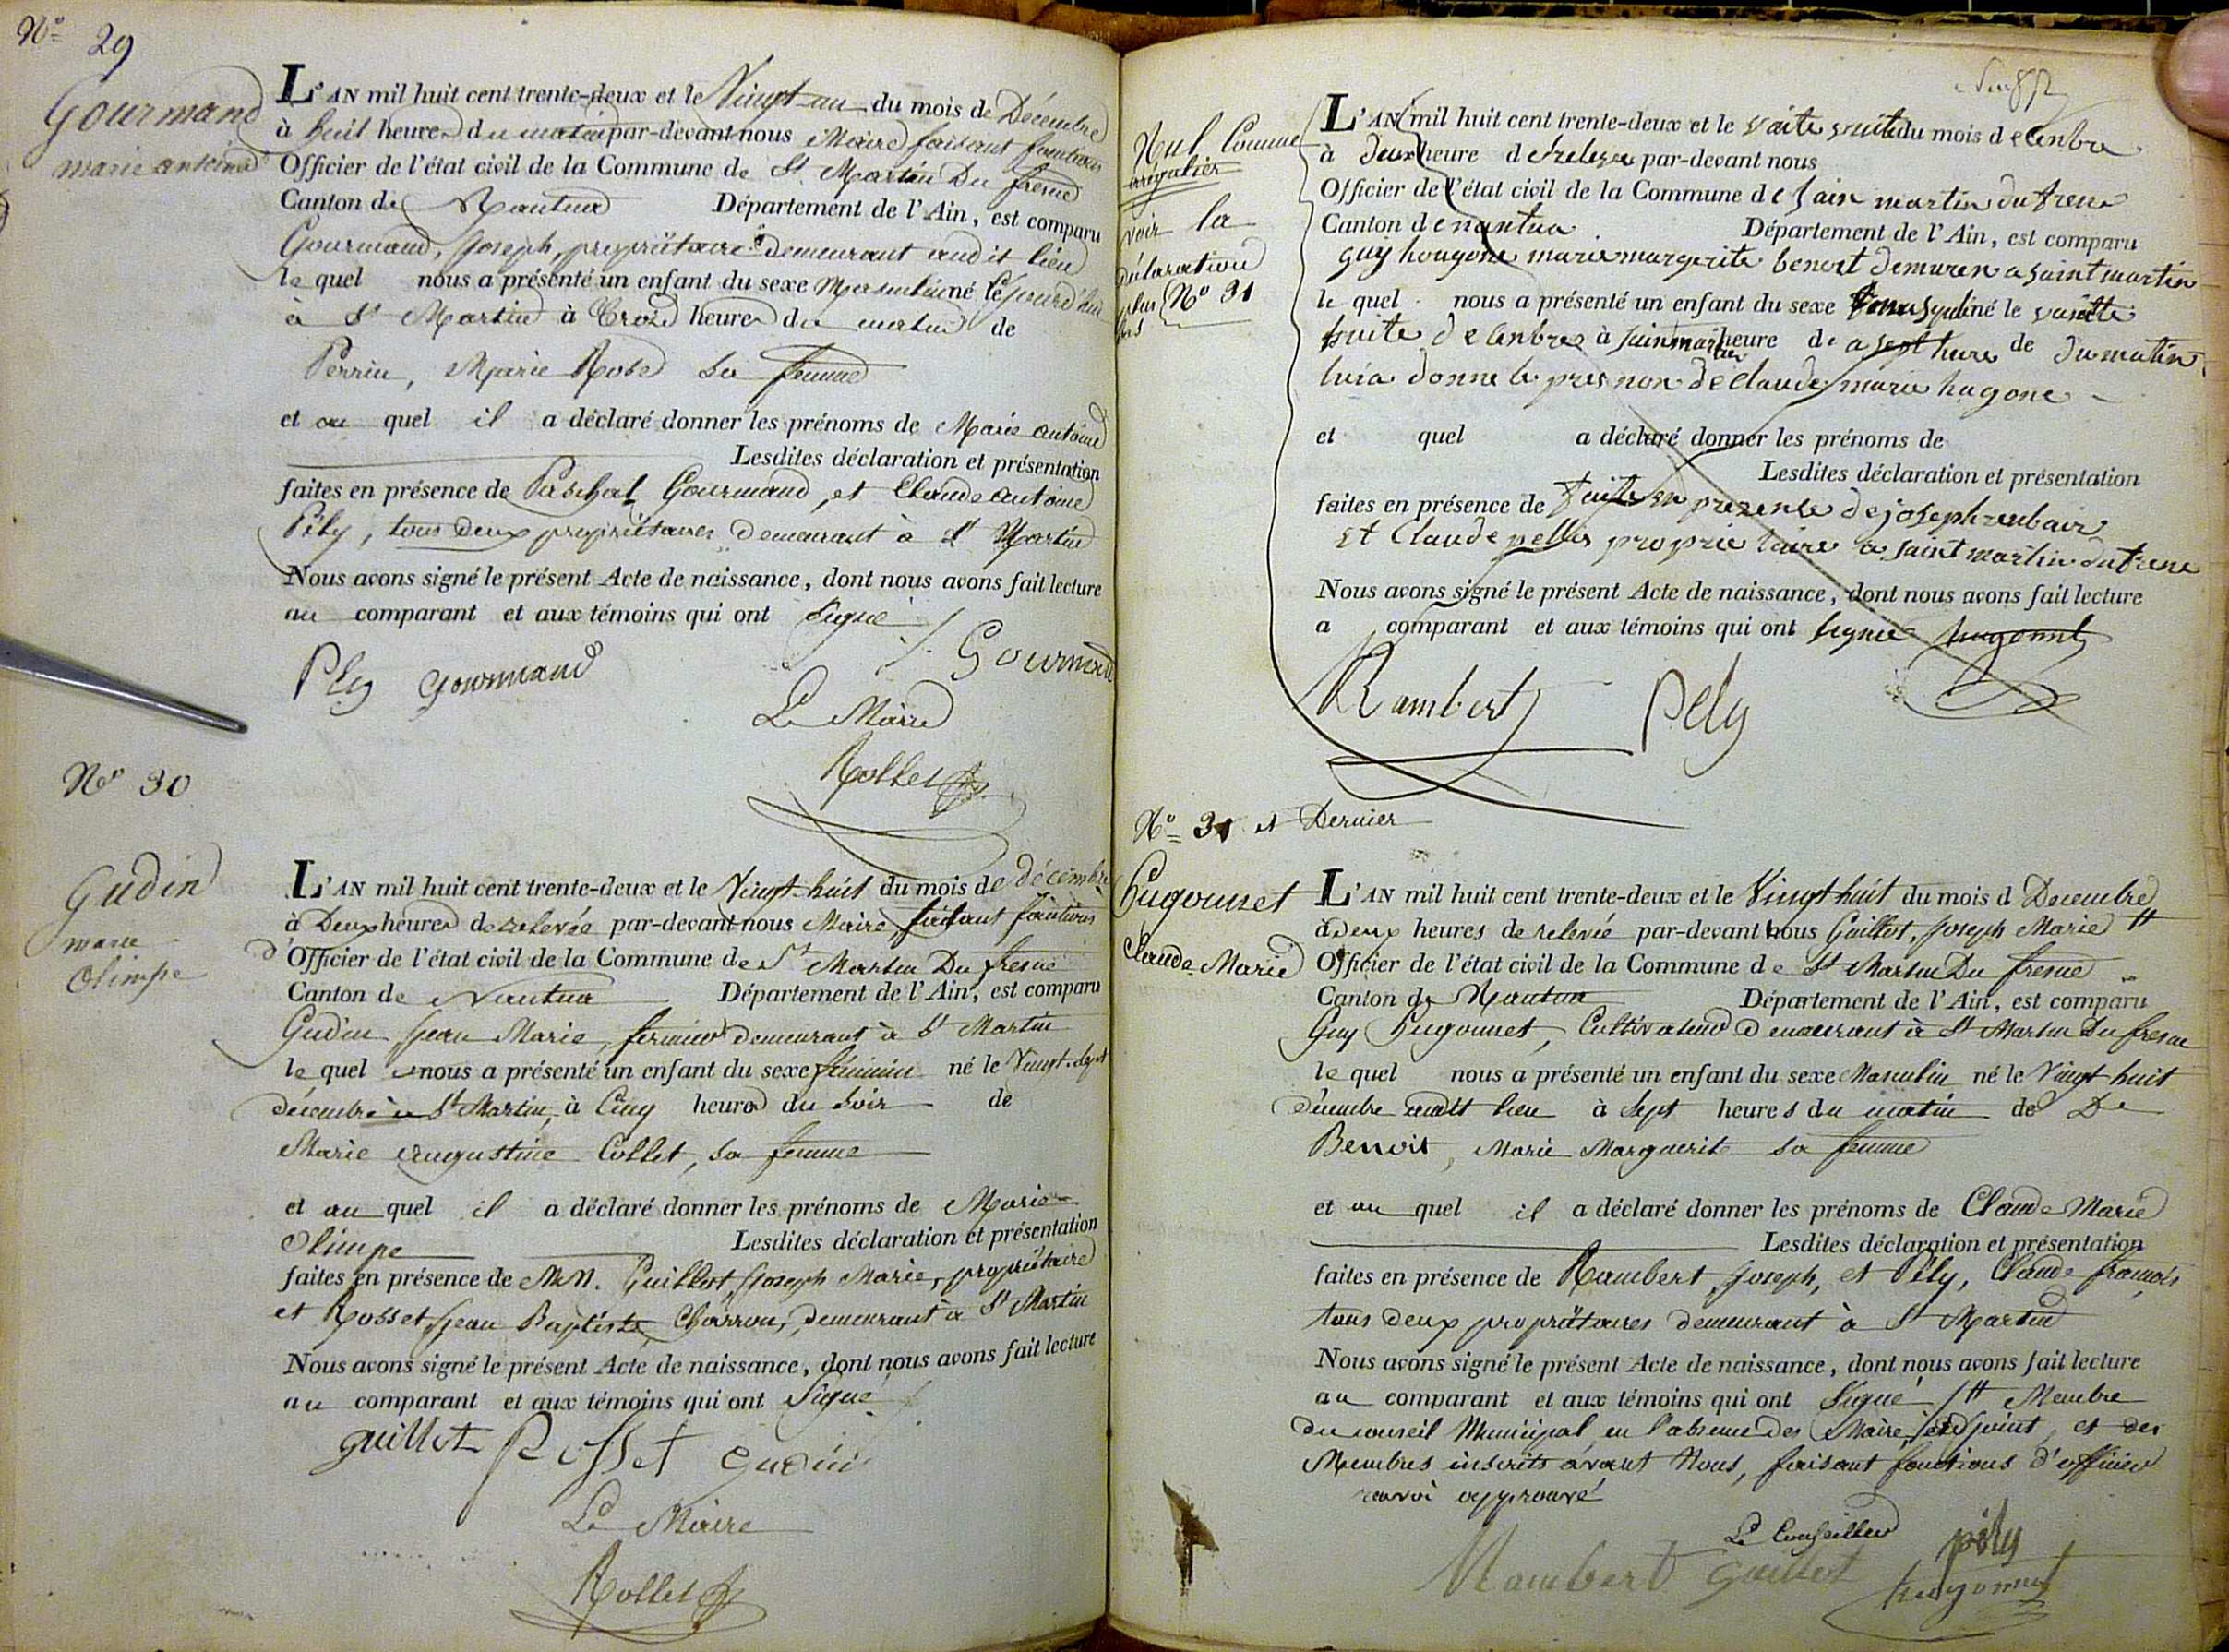 Nº 29
Gourmand
marie antoine
L'AN mil huit cent trente-deux et le Vingt-un du mois de Décembre
à huit heures du matin par-devant nous Maire faisant fonctions
Officier de l'état civil de la Commune de St Martin Du fresne
Canton de Nantua Département de l'Ain, est comparu
Gourmand, Joseph, propriétaire demeurant audit lieu
le quel nous a présenté un enfant du sexe Masculin né le jourd'hui
à St Martin à Trois heures du matin de
Perrin, Marie Rose sa femme
et au quel il a déclaré donner les prénoms de Marie antoine
Lesdites déclaration et présentation
faites en présence de Paschal Gourmand, et Claude antoine
Pély, tous deux propriétaires demeurant à St Martin
Nous avons signé le présent Acte de naissance, dont nous avons fait lecture
au comparant et aux témoins qui ont Signé
J. Gourmand
Pely gourmand
Le Maire
Rollet
Nº 30
Gudin
marie
Olimpe
L'AN mil huit cent trente-deux et le Vingt-huit du mois de décembre
à Deux heures de relevée par-devant nous Maire faisant fonctions
d'Officier de l'état civil de la Commune de St Martin Du fresne
Canton de Nantua Département de l'Ain, est comparu
Gudin Jean Marie, fermier demeurant à St Martin
le quel nous a présenté un enfant du sexe féminin né le Vingt-Sept
décembre à St Martin, à Cinq heures du Soir de
Marie Augustine Collet, sa femme
et au quel il a déclaré donner les prénoms de Marie
Olimpe Lesdites déclaration et présentation
faites en présence de MM. Guillot, Joseph Marie, propriétaire
et Rosset Jean Baptiste, Charron, demeurant à St Martin
Nous avons signé le présent Acte de naissance, dont nous avons fait lecture
au comparant et aux témoins qui ont Signé
guillot Rosset gudin
Le Maire
Rollet
Nul Comme
irrégulier
voir la
déclaration
plus Nº 31
bas
L'AN mil huit cent trente-deux et le vaite vuite du mois de cenbre
à deux heure de relevee par-devant nous
Officier de l'état civil de la Commune de sain martin du frene
Canton de nantua Département de l'Ain, est comparu
guy hougone marie margerite benoit demuren a saint martin
le quel nous a présenté un enfant du sexe né le vaitte
huite de cenbre à sain martin heure de a sept hure de du matin
luia donne le pres non de claude marie hugone
et quel a déclaré donner les prénoms de
Lesdites déclaration et présentation
faites en présence de faite en prezense de joseph renbair
et Claude pellis proprie taire a saint martin du frene
Nous avons signé le présent Acte de naissance, dont nous avons fait lecture
a comparant et aux témoins qui ont signe hugonnet
Rambert Pely
Nº 31 et Dernier
Hugonnet
Claude Marie
L'AN mil huit cent trente-deux et le Vingt huit du mois d Decembre
à deux heures de relevée par-devant nous Guillot, Joseph Marie #
Officier de l'état civil de la Commune de St Martin Du fresne
Canton de Nantua Département de l'Ain, est comparu
Guy Hugonnet, Cultivateur demeurant à St Martin Du fresne
le quel nous a présenté un enfant du sexe Masculin né le Vingt huit
décembre audit lieu à Sept heures du matin de De
Benoit, Marie Marguerite sa femme
et au quel il a déclaré donner les prénoms de Claude Marie
Lesdites déclaration et présentation
faites en présence de Rambert, Joseph, et Pély, Claude françois
tous deux propriétaires demeurant à St Martin
Nous avons signé le présent Acte de naissance, dont nous avons fait lecture
au comparant et aux témoins qui ont Signé /# Membre
du conseil Municipal en l'absence des Maire, adjoint, et des
Membres inscrits avant Nous, faisant fonctions d'officier
renvoi approuvé
Le Conseiller
Rambert guillot pély
hugonnet